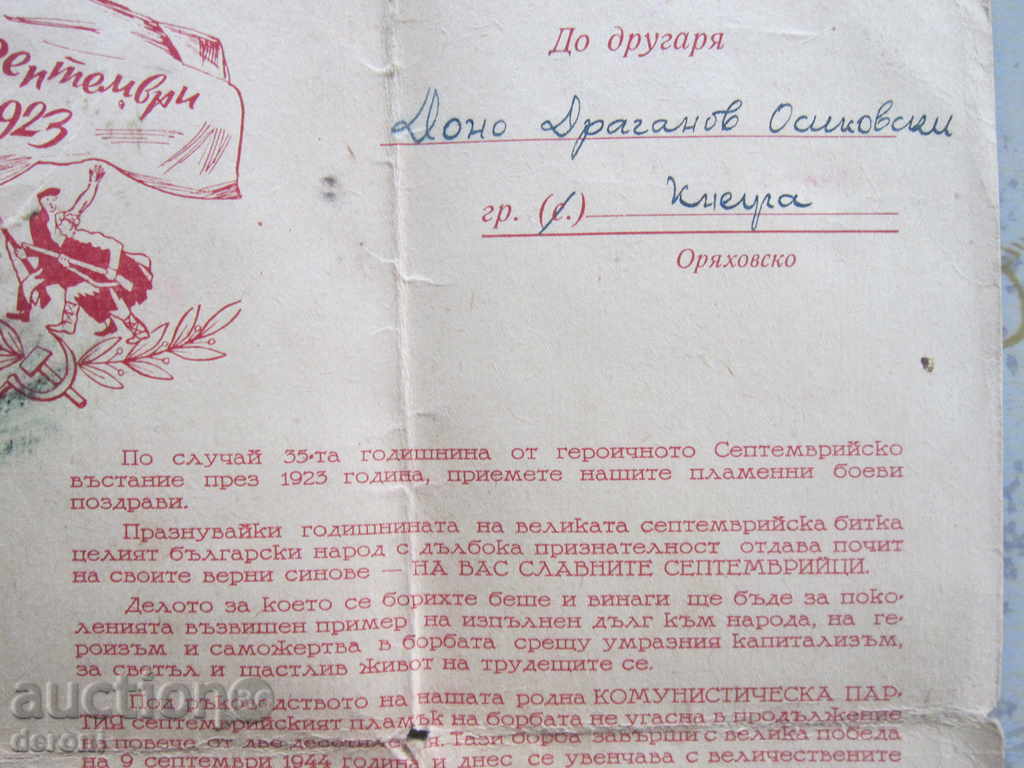 септември
1923
До другаря
Доно Драганов Осиковски
гр. (с.) Кнежа
Оряховско
По случай 35-та годишнина от героичното Септемврийско
въстание през 1923 година, приемете нашите пламенни боеви
поздрави.
Празнувайки годишнината на великата септемврийска битка
целият български народ с дълбока признателност отдава почит
на своите верни синове — НА ВАС СЛАВНИТЕ СЕПТЕМВРИЙЦИ.
Делото за което се борихте беше и винаги ще бъде за поко-
ленията възвишен пример на изпълнен дълг към народа, на ге-
роизъм и саможертва в борбата срещу умразния капитализъм,
за светъл и щастлив живот на трудещите се.
Под ръководството на нашата родна КОМУНИСТИЧЕСКА ПАР-
ТИЯ септемврийският пламък на борбата не угасна в продължение
на повече от две десетилетия. Тази борба завърши с велика победа
на 9 септември 1944 година и днес се увенчава с величествените